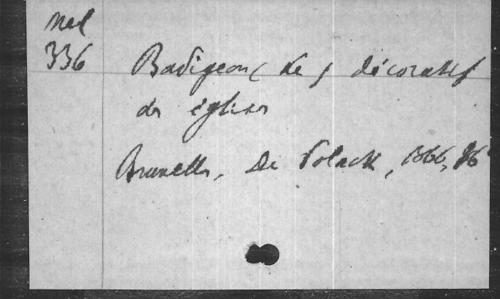 Mel
336
Badigeon (le) décoratif
des églises
Bruxelles, De Polack, 1866, 16°